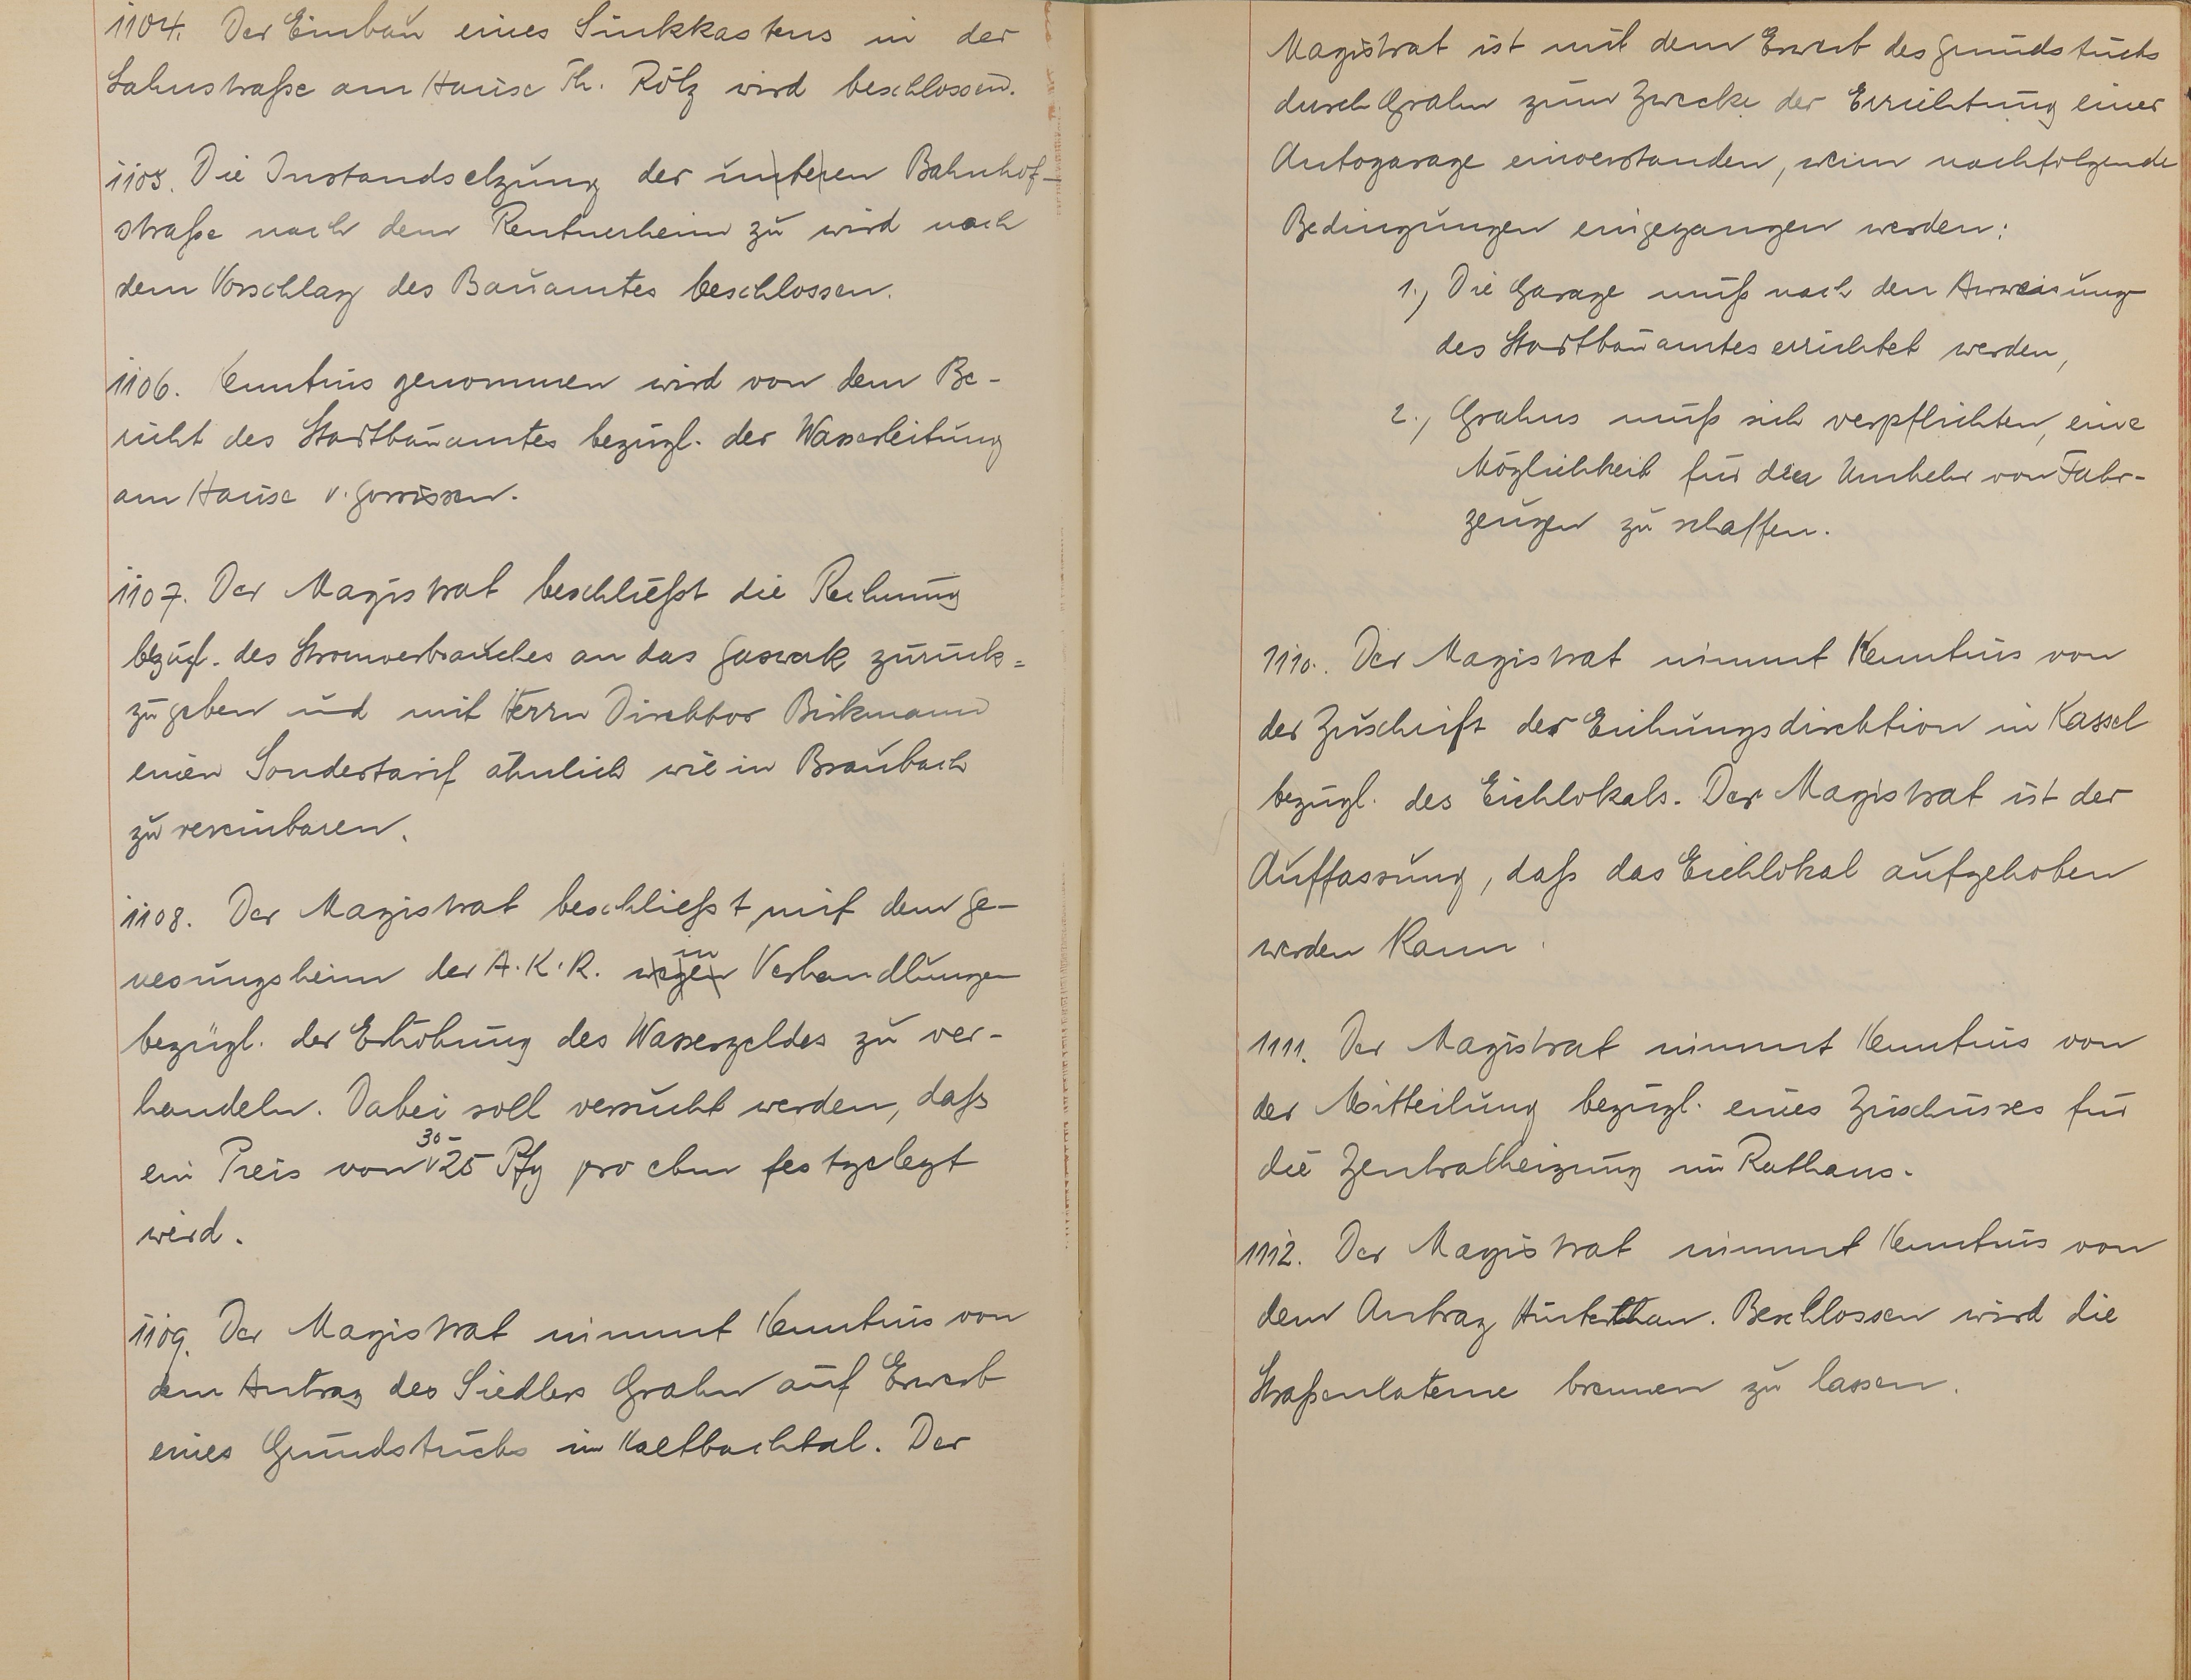 1104. Der Einbau eines Sinkkastens in der
Lahnstraße am Hause Th. Rölz wird beschlossen.
1105. Die Instandsetzung der unteren Bahnhof-
straße nach dem Rentnerheim zu wird nach
dem Vorschlag des Bauamtes beschlossen.
1106. Kenntnis genommen wird von dem Be-
richt des Stadtbauamtes bezügl. der Wasserleitung
am Hause v. Gorrissen.
1107. Der Magistrat beschließt die Rechnung
bezügl. des Stromverbrauches an das Gaswerk zurück=
zugeben und mit Herrn Direktor Birkmann
einen Sondertarif ähnlich wie in Braubach
zu vereinbaren.
1108. Der Magistrat beschließt mit dem Ge-
nesungsheim der A.K.R. wegen in Verhandlungen
bezügl. der Erhöhung des Wassergeldes zu ver-
handeln. Dabei soll versucht werden, daß
ein Preis von 30-25 Pfg pro cbm festgelegt
wird.
1109. Der Magistrat nimmt Kenntnis von
dem Antrag des Siedlers Grahn auf Erwerb
eines Grundstücks im Kaltbachtal. Der
Magistrat ist mit dem Erwerb des Grundstücks
durch Grahn zum Zwecke der Errichtung einer
Autogarage einverstanden, wenn nachfolgende
Bedingungen eingegangen werden:
1., Die Garage muß nach den Anweisung
des Stadtbauamtes errichtet werden,
2., Grahns muß sich verpflichten, eine
Möglichkeit für den Umkehr von Fahr-
zeugen zu schaffen.
1110. Der Magistrat nimmt Kenntnis von
der Zuschrift der Eichungsdirektion in Kassel
bezügl. des Eichlokals. Der Magistrat ist der
Auffassung, daß das Eichlokal aufgehoben
werden kann.
1111. Der Magistrat nimmt Kenntnis von
der Mitteilung bezügl. eines Zuschusses für
die Zentralheizung im Rathaus.
1112. Der Magistrat nimmt Kenntnis von
dem Antrag Hinterthan. Beschlossen wird die
Straßenlaterne brennen zu lassen.